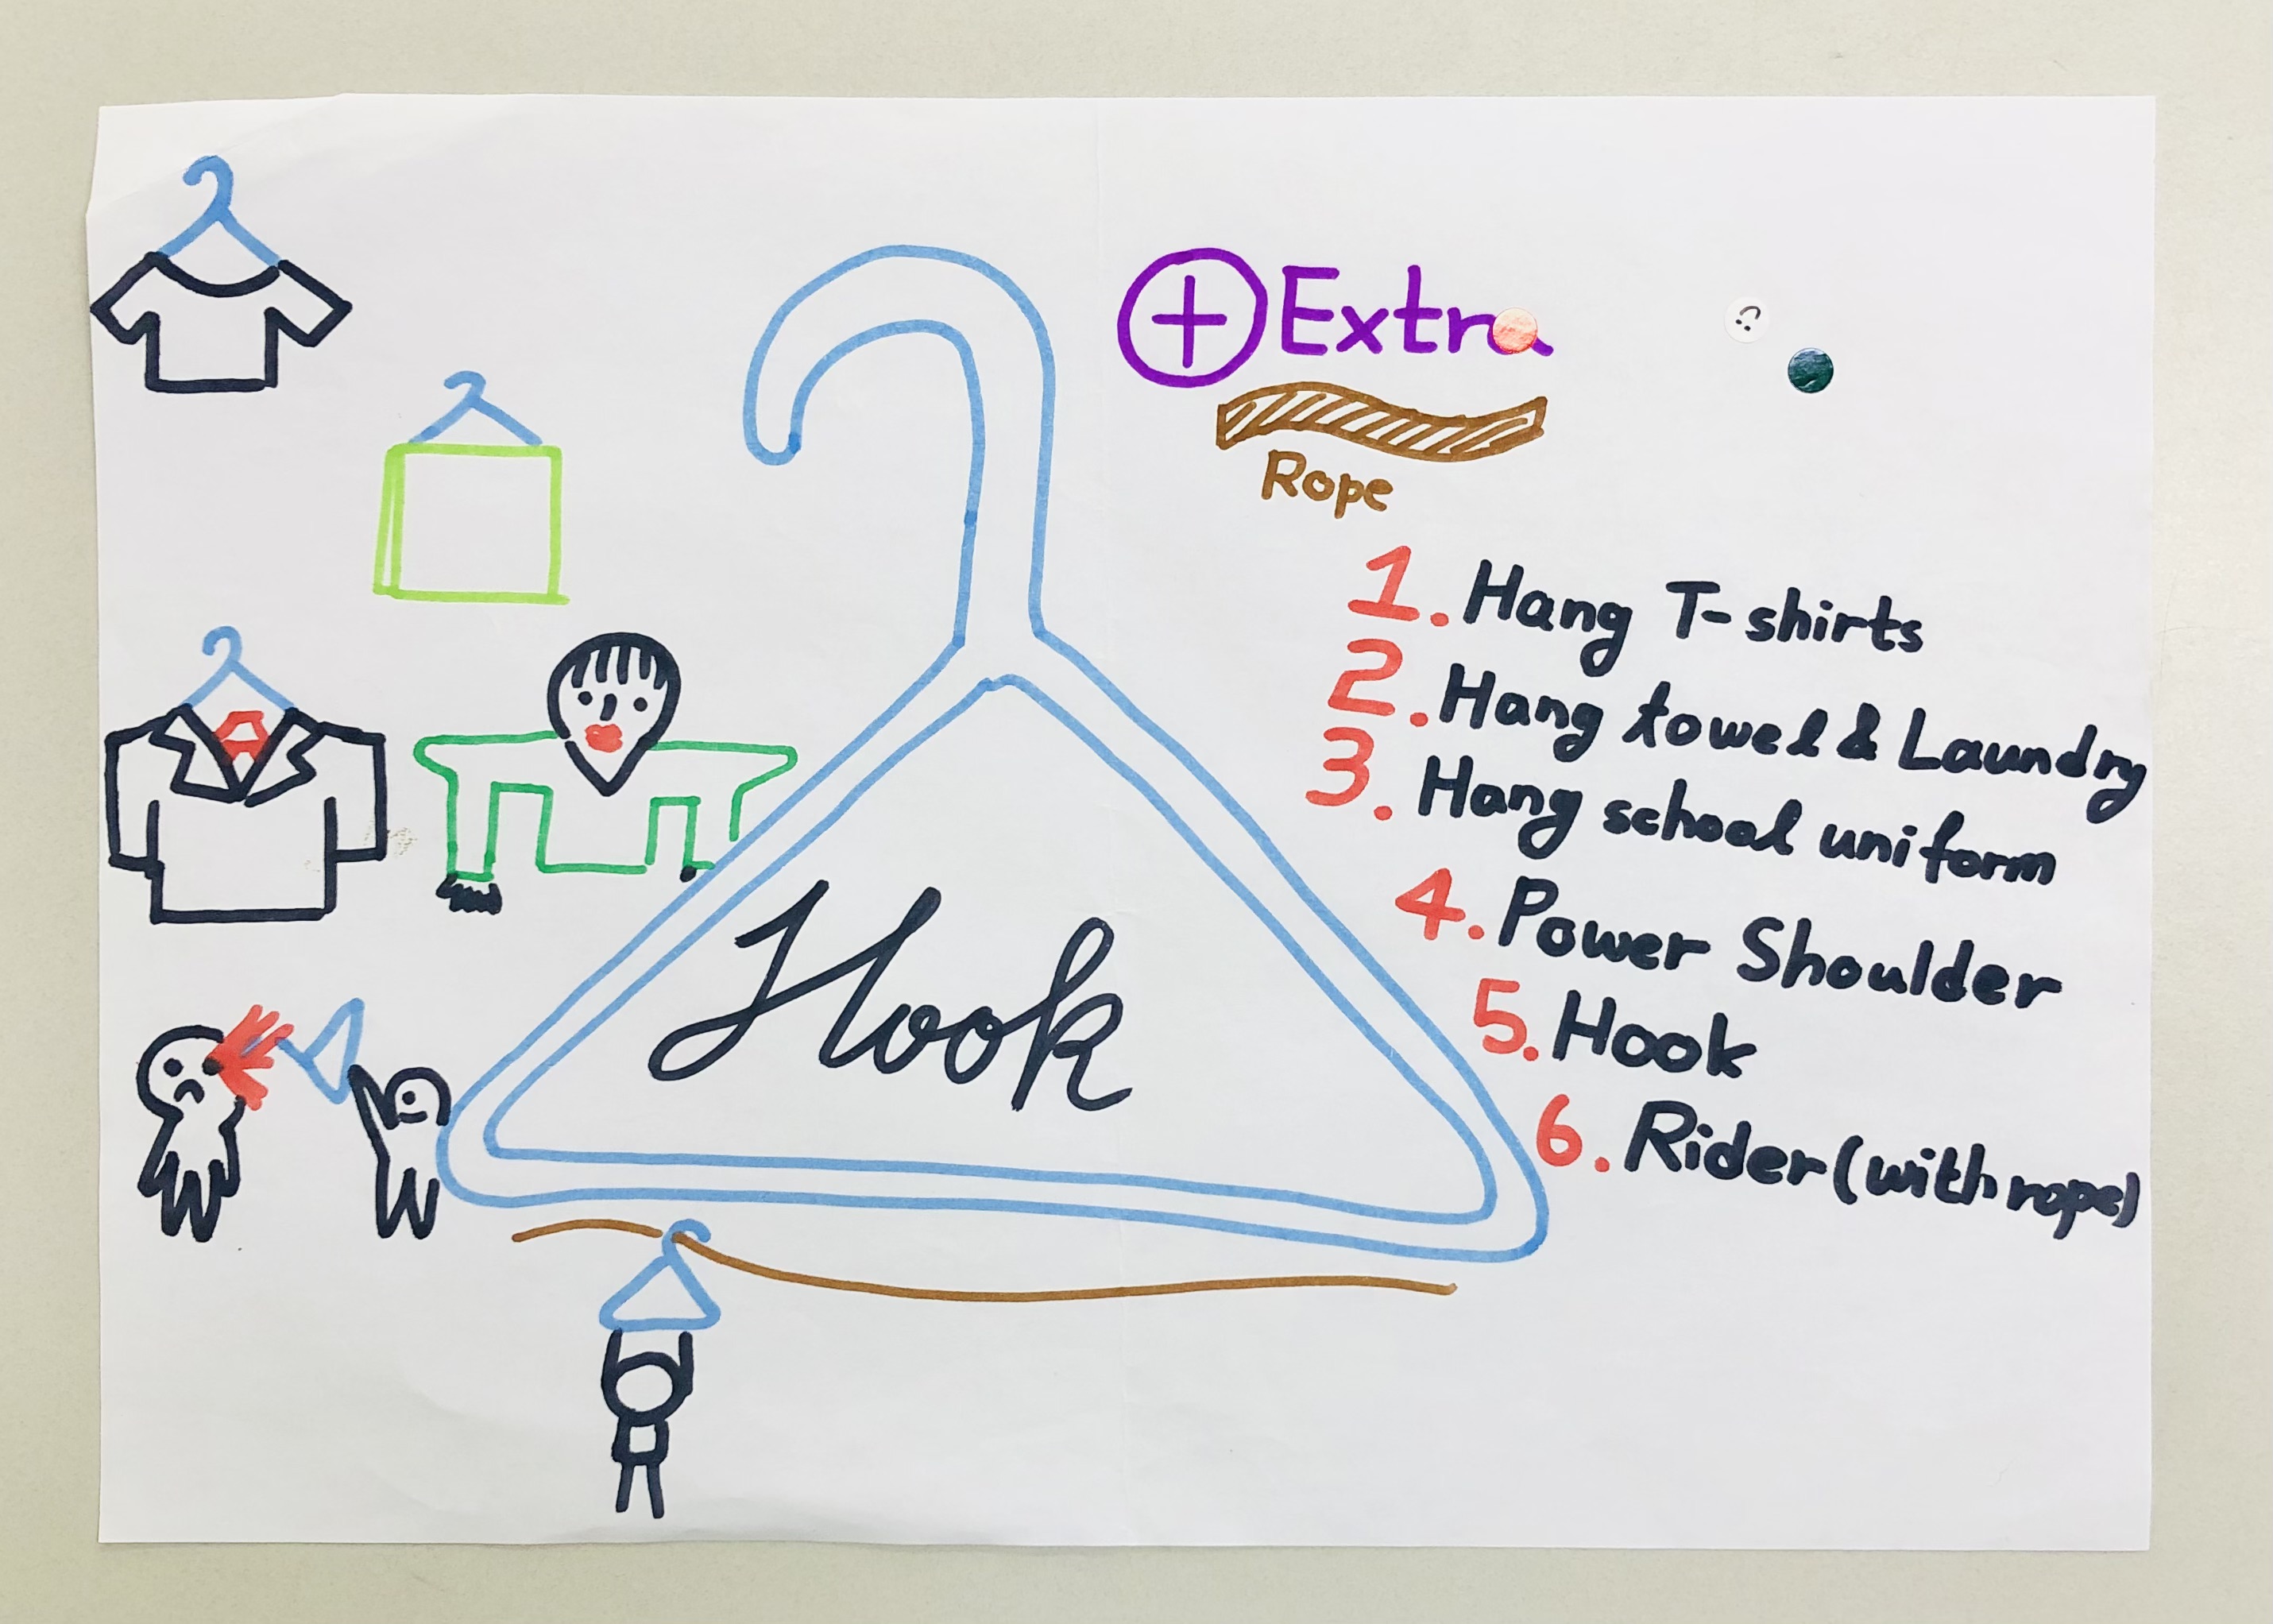 + Extra
Rope
1. Hang T-shirts
2. Hang towel & Laundry
3. Hang school uniform
4. Power Shoulder
5. Hook
6. Rider (with rope)
Hook